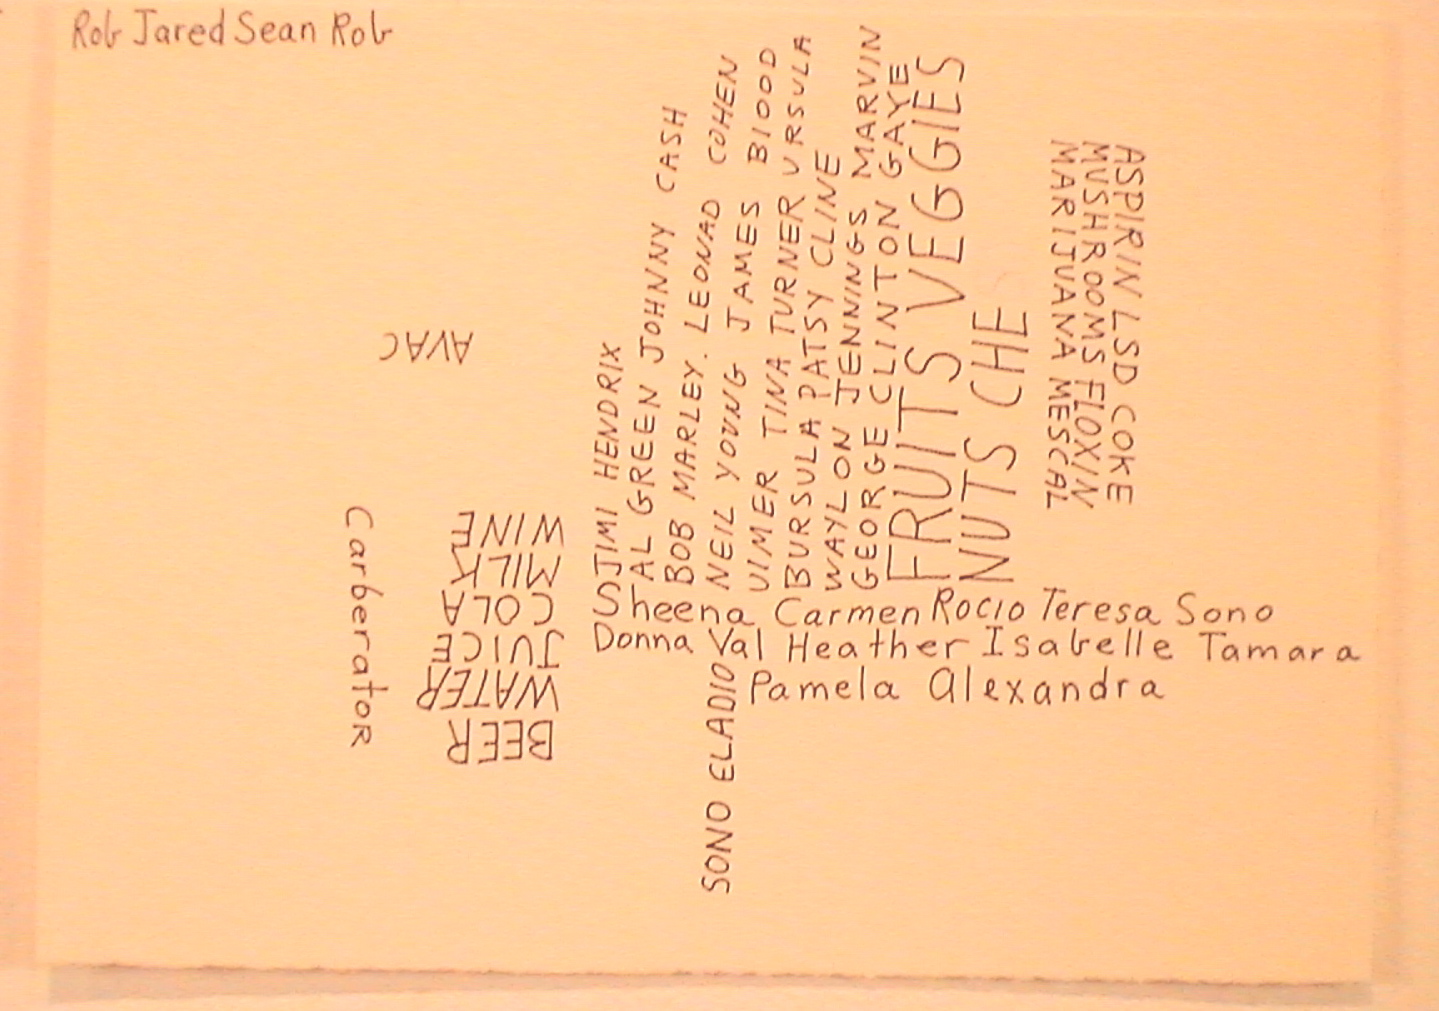 Rob Jared Sean Rob
JIMI HENDRIX
AL GREEN JOHNNY CASH
BOB MARLEY. LEONAD COHEN
NEIL YOUNG JAMES BlOOD
UlMER TINA TURNER URSULA
BURSULA PATSY CLINE
WAYLON JENNINGS MARVIN
GEORGE CLINTON GAYE
FRUITS VEGGIES
NUTS CHE
ASPIRIN LSD COKE
MUSHROOMS FLOXIN
MARIJUANA MESCAL
AVAC
Carberator
BEER
WATER
JUICE
COLA
MILK
WINE
Sheena Carmen Rocio Teresa Sono
Donna Val Heather Isabelle Tamara
Pamela Alexandra
SONO ELADIO